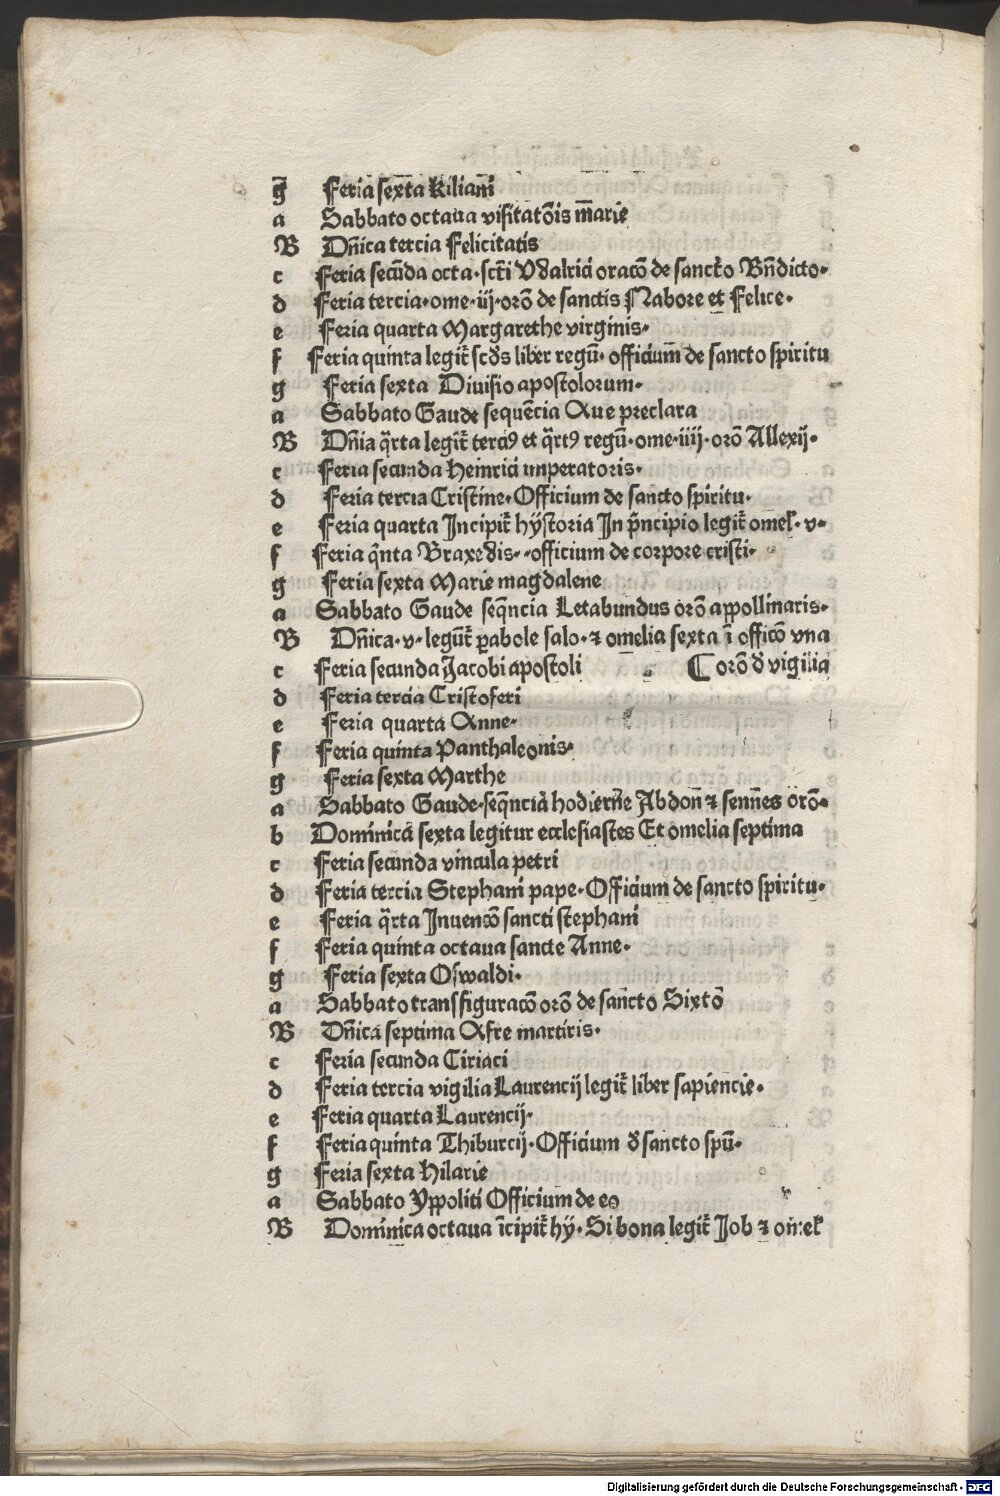 g Feria sexta Kiliani
a Sabbato octaua visitatōis marie
B Dn̄ica tercia Felicitatis
c Feria secūda octa· sct̄i Vdalrici oracō de sancto Bn̄dicto·
d Feria tercia· ome· iij· orō de sanctis Nabore et Felice·
e Feria quarta Margarethe virginis·
f Feria quinta legit̄ scd̄s liber regū· officium de sancto spiritu
g Feria sexta Diuisio apostolorum·
a Sabbato Gaude sequēcia Aue preclara
B Dn̄ia q̄rta legit̄ terciꝰ et q̄rtꝰ regū· ome· iiij· orō Allexij·
c Feria secunda Heinrici imperatoris·
d Feria tercia Cristine· Officium de sancto spiritu·
e Feria quarta Incipit̄ hystoria In p̄ncipio legit̄ omel̄· v·
f Feria q̄nta Braxedis· officium de corpore cristi·
g Feria sexta Marie magdalene
a Sabbato Gaude seq̄ncia Letabundus orō appollinaris·
B Dn̄ica· v· legūt̄ ꝑabole salo· ⁊ omelia sexta ī officō vna
c Feria secunda Jacobi apostoli ⊂ orō d̄ vigilia
d Feria tercia Cristoferi
e Feria quarta Anne·
f Feria quinta Panthaleonis·
g Feria sexta Marthe
a Sabbato Gaude· seq̄ncia hodierne Abdon ⁊ sennes orō·
b Dominica sexta legitur ecclesiastes Et omelia septima
c Feria secunda vincula petri
d Feria tercia Stephani pape· Officium de sancto spiritu·
e Feria q̄rta Inuencō sancti stephani
f Feria quinta octaua sancte Anne·
g Feria sexta Oswaldi·
a Sabbato transfiguracō orō de sancto Sixto
B Dn̄ica septima Afre martiris·
c Feria secunda Ciriaci
d Feria tercia vigilia Laurencij legit̄ liber sapiencie·
e Feria quarta Laurencij·
f Feria quinta Thiburcij· Officium d̄ sancto spū·
g Feria sexta Hilarie
a Sabbato Yppoliti Officium de eo
B Dominica octaua īcipit̄ hy· Si bona legit̄ Job ⁊ omel̄
Digitalisierung gefördert durch die Deutsche Forschungsgemeinschaft · DFG